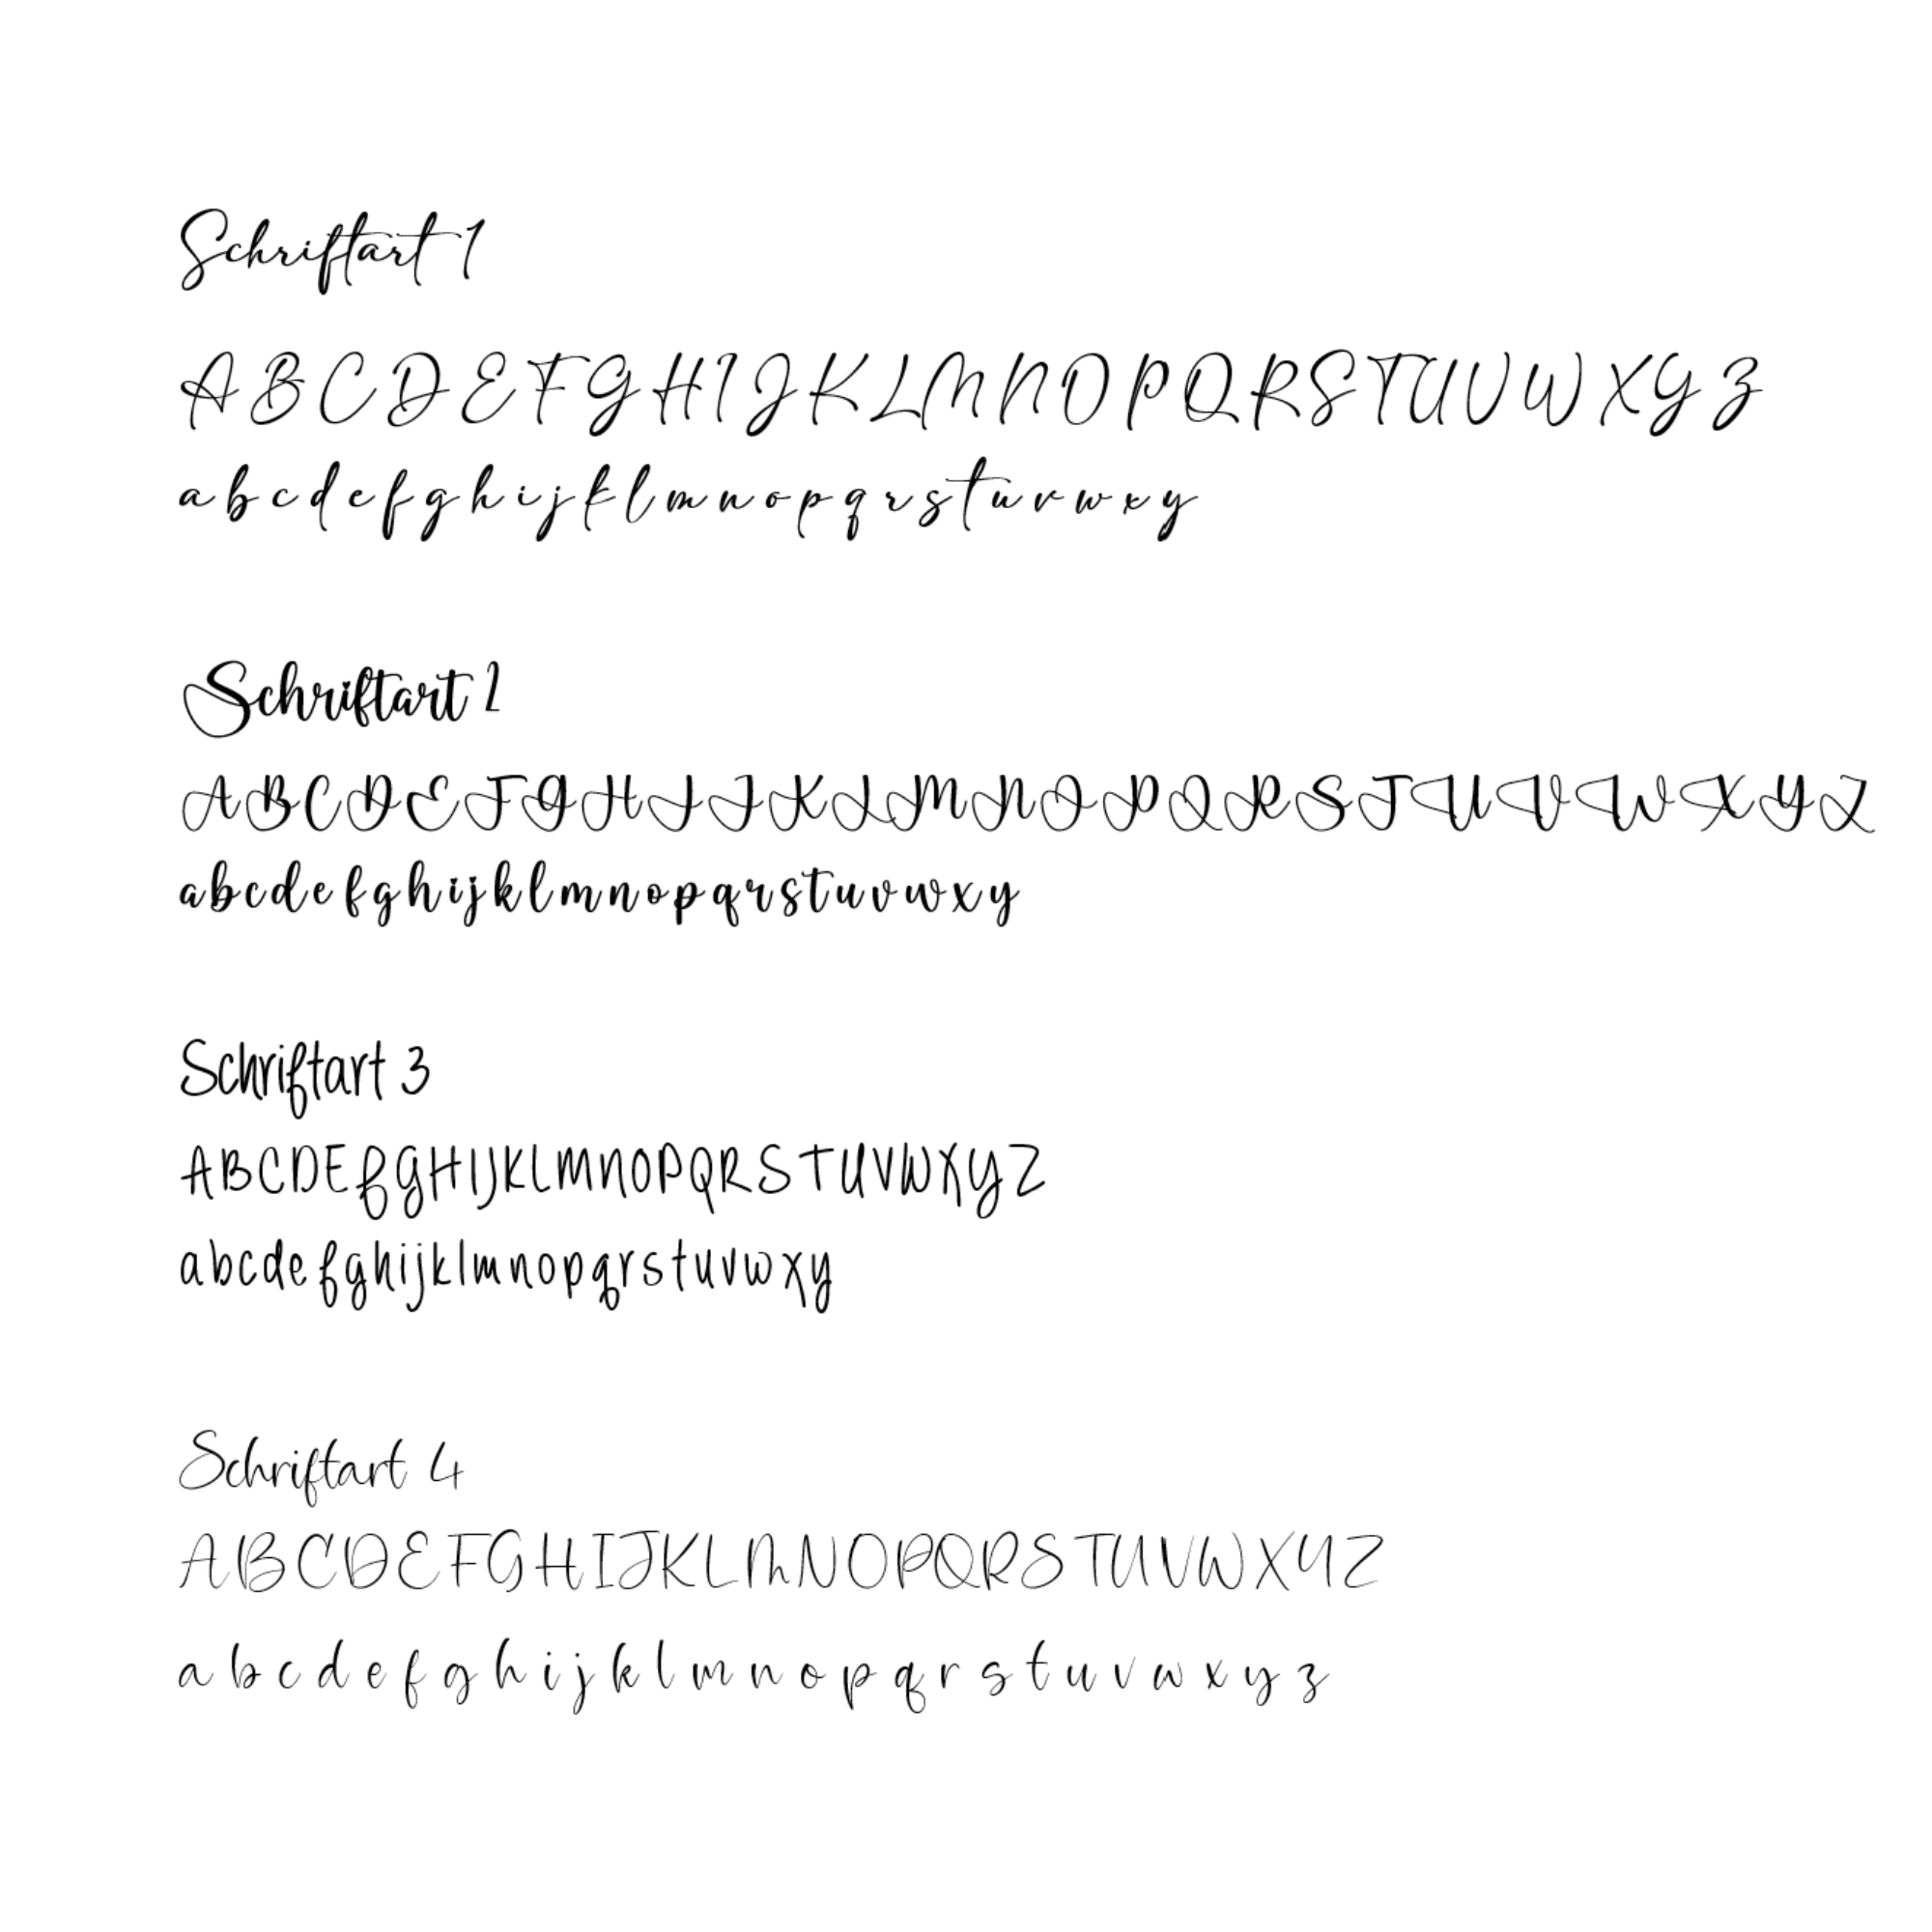 Schriftart 1
A B C D E F G H I J K L M N O P Q R S T U V W X Y Z
a b c d e f g h i j k l m n o p q r s t u v w x y
Schriftart 2
A B C D E F G H I J K L M N O P Q R S T U V W X Y Z
a b c d e f g h i j k l m n o p q r s t u v w x y
Schriftart 3
A B C D E F G H I J K L M N O P Q R S T U V W X Y Z
a b c d e f g h i j k l m n o p q r s t u v w x y
Schriftart 4
A B C D E F G H I J K L M N O P Q R S T U V W X Y Z
a b c d e f g h i j k l m n o p q r s t u v w x y z